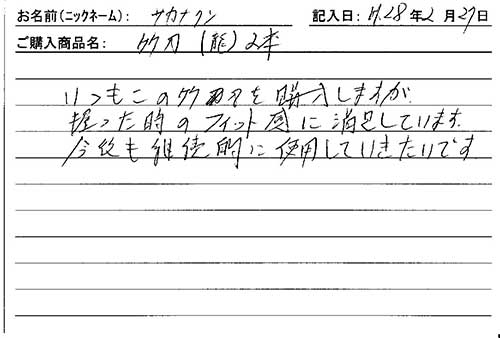 お名前(ニックネーム): サカナクン 記入日: H.28年2月27日
ご購入商品名: 竹刀(能)2本
いつもこの竹刀を購入しますが
握った時のフィット感に満足しています。
今後も継続的に使用していきたいです